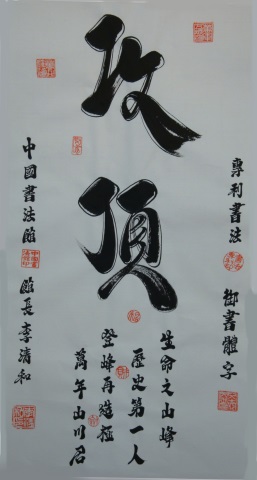 攻頂
專利書法 御書體字
生命之山峰
歷史第一人
登峰再造極
萬年山川名
中國書法館 館長李清和